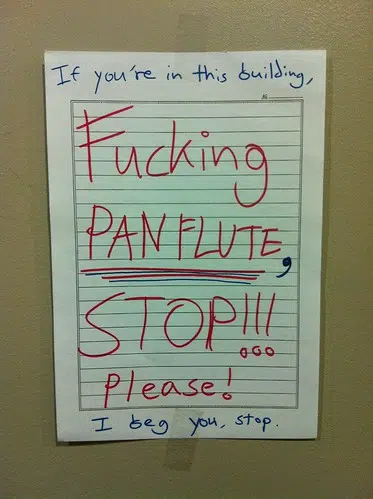 If you're in this building,
№
Fucking
PAN FLUTE,
STOP!!!
please!
I beg you, stop.